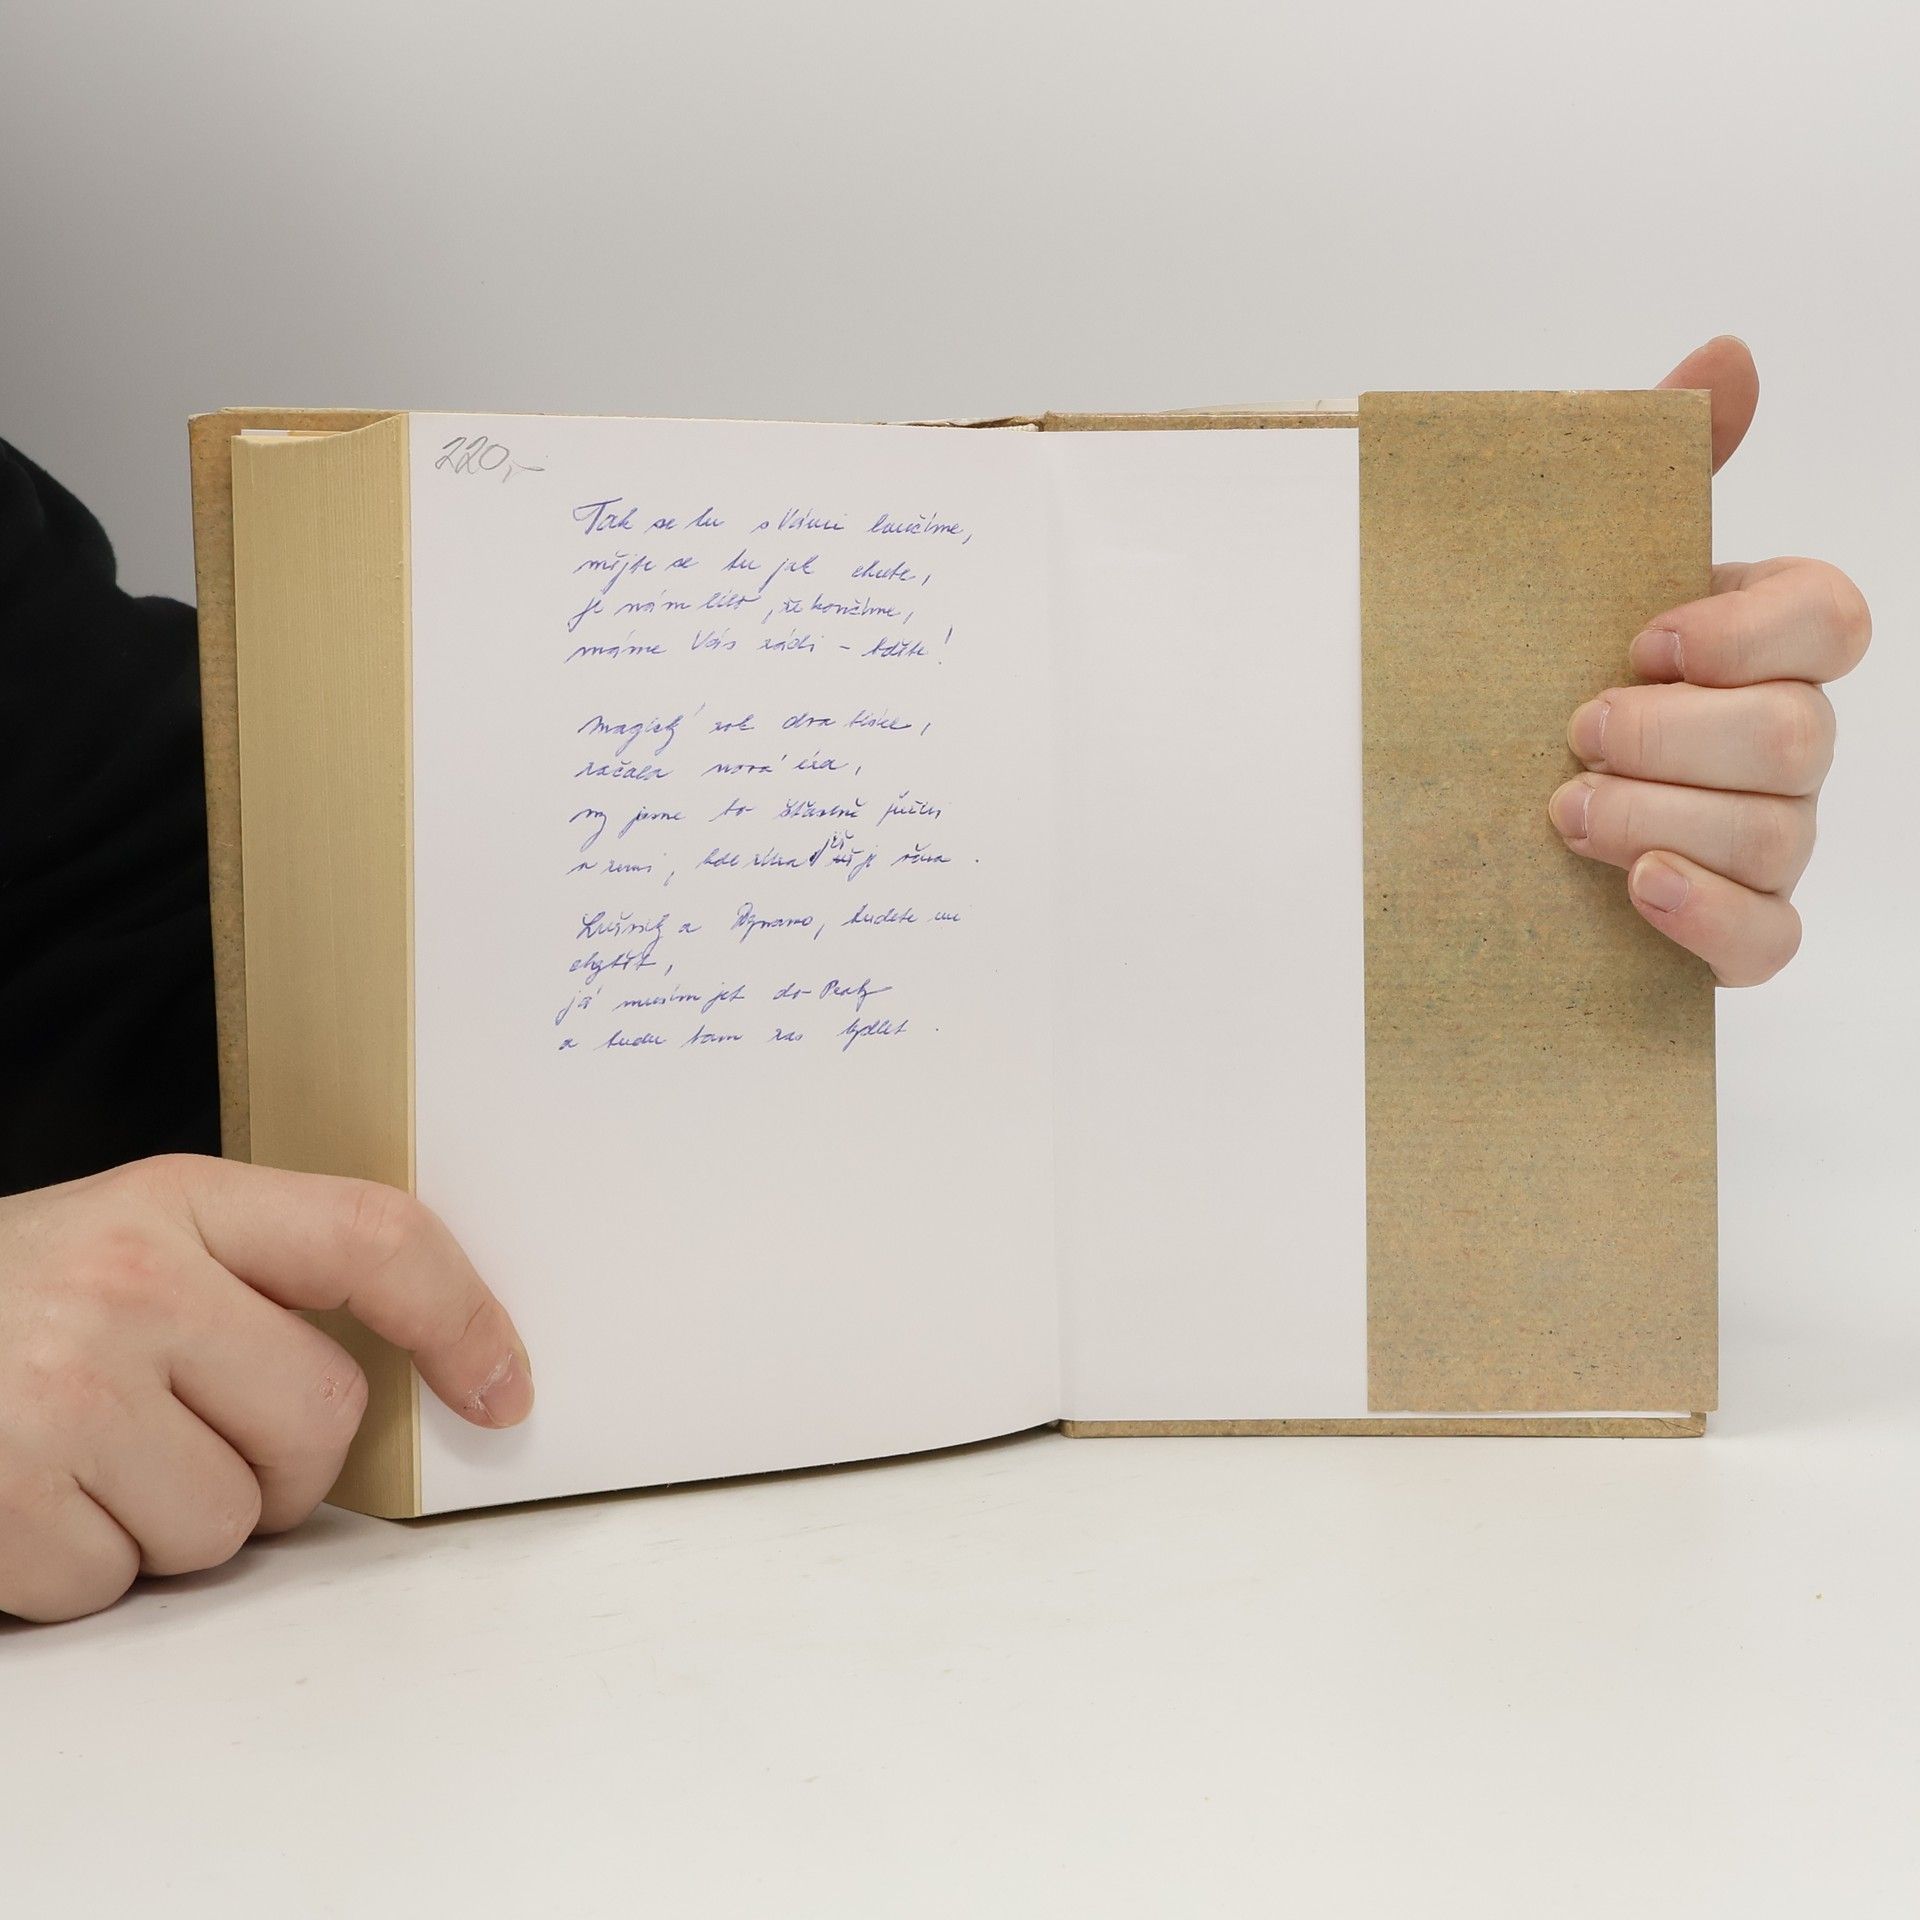 220,-
Tak se tu s Vámi loučíme,
mějte se tu jak chcete,
je nám líto, že končíme,
máme Vás rádi - bděte!
Magický rok dva tisíce,
začala nová éra,
my jsme to šťastně přežili
v zemi, kde zima též je
Lužniký a Dynamo, budete mi
chybět,
já musím jet do Prahy
a budu tam zas bydlet.